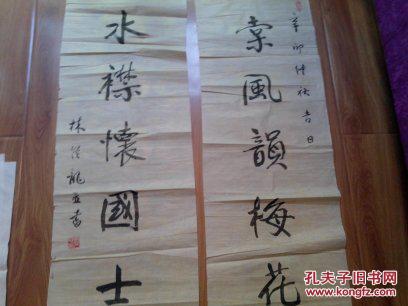 辛卯仲秋吉日
棠風韻梅花
水襟懷國士
林從龍並書
孔夫子旧书网
www.kongfz.com